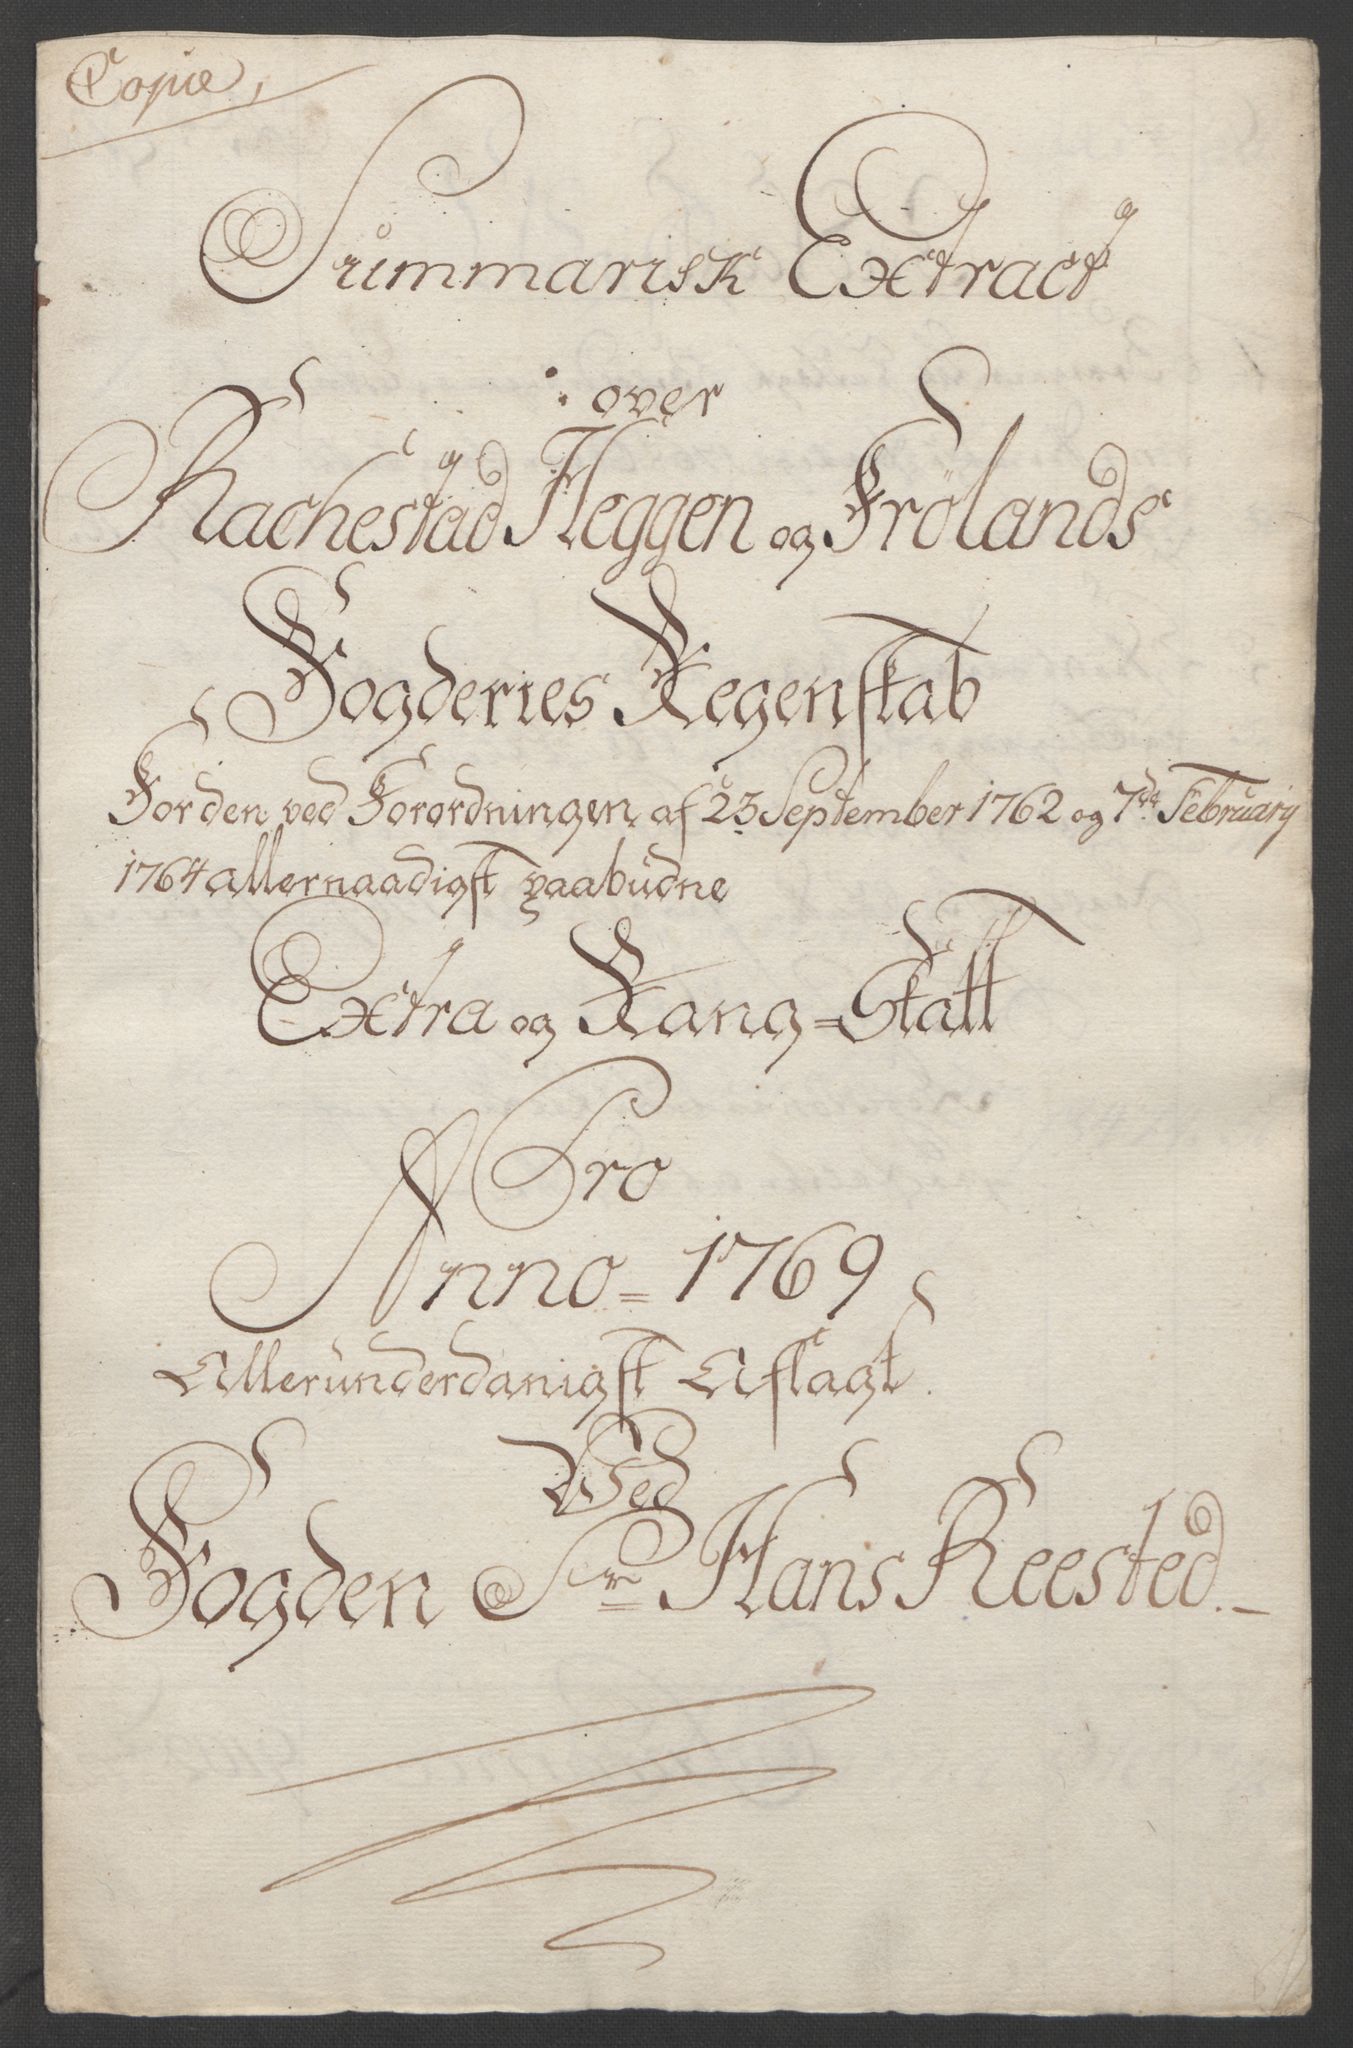 Copie,
Summarisk Extract
over
Rachestad Heggen og Frölands
Fogderies Regenskab
For den ved Forordningen af 23 September 1762 og 7de February
1764 allernaadigst paabudne
Extra og Rang=Skatt
Pro
Anno = 1769
Allerunderdanigst Aflagt.
Wed
Fogden Sr Hans Reested.-